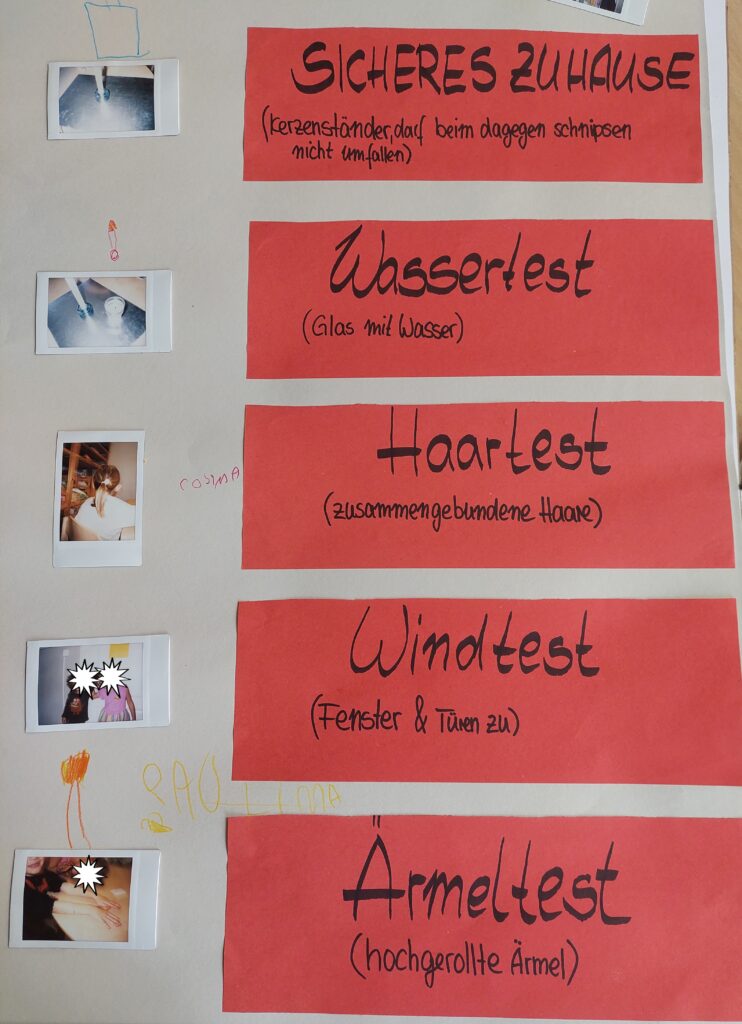 SICHERES ZUHAUSE
(Kerzenständer, darf beim dagegen schnipsen
nicht umfallen)
!
Wassertest
(Glas mit Wasser)
Haartest
COSIMA
(zusammengebundene Haare)
Windtest
(Fenster & Türen zu)
PAULINA
Ärmeltest
(hochgerollte Ärmel)